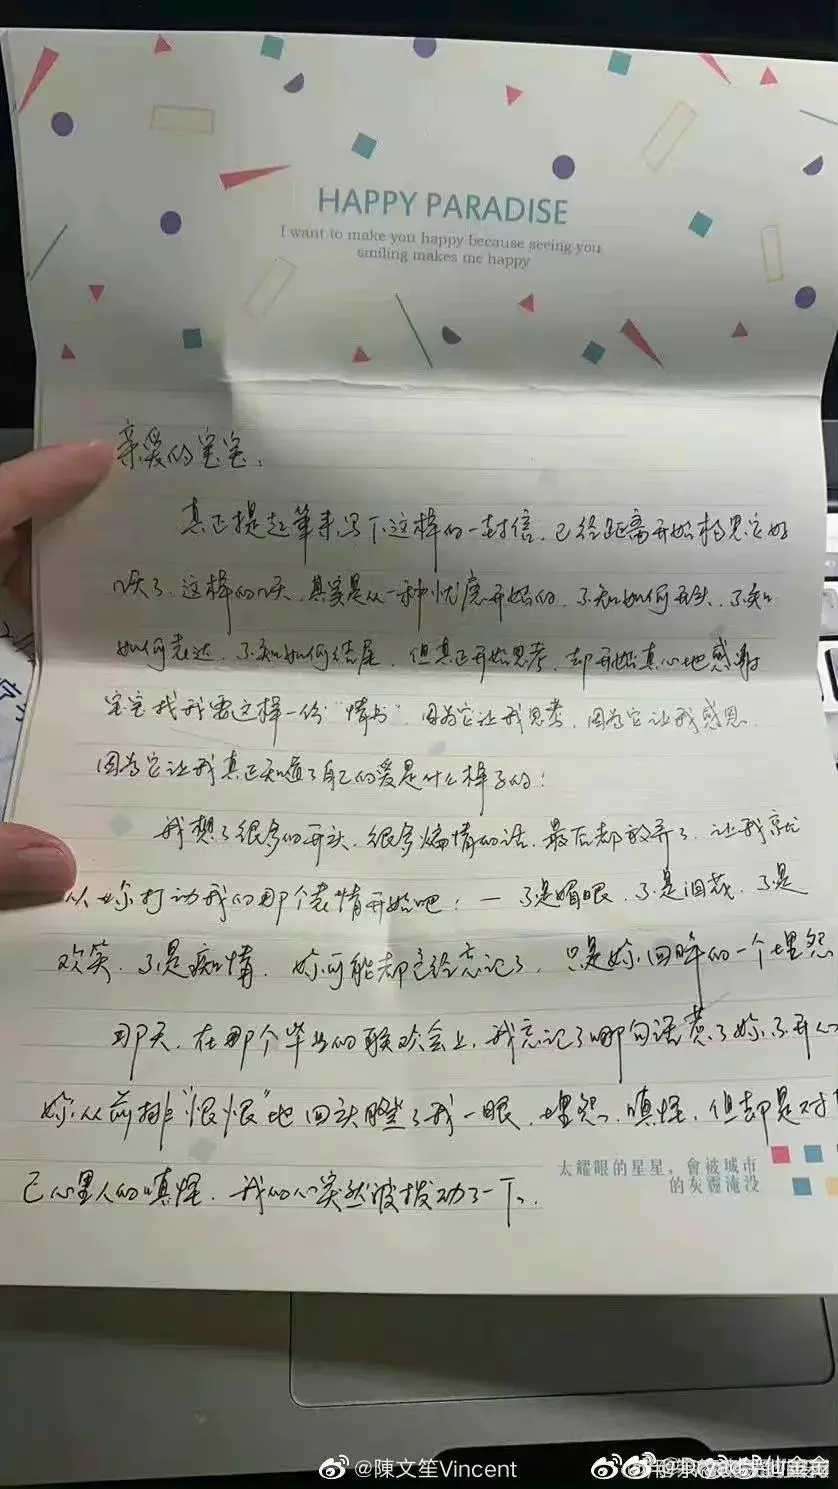 HAPPY PARADISE
I want to make you happy because seeing you
smiling makes me happy
亲爱的宝宝：
真正提起笔来写下这样的一封信，已经距离开始构思它好
几天了，这样的几天，其实是从一种忧虑开始的，不知如何开头，不知
如何表达，不知如何结尾，但真正开始思考，却开始真心地感谢
宝宝找我要这样一份“情书”，因为它让我思考，因为它让我感恩，
因为它让我真正知道了自己的爱是什么样子的：
我想了很多的开头，很多煽情的话，最后都放弃了，让我就
从妳打动我的那个表情开始吧：— 不是媚眼，不是泪花，不是
欢笑，不是痴情，妳可能都已经忘记了，只是妳回眸的一个埋怨
那天，在那个毕业的联欢会上，我忘记了哪句话惹了妳不开心
妳从前排“恨恨”地回头瞪了我一眼，埋怨，嗔怪，但却是对
己心里人的嗔怪，我的心突然被拨动了一下。
太耀眼的星星，會被城市
的灰霾淹没
@陳文笙Vincent